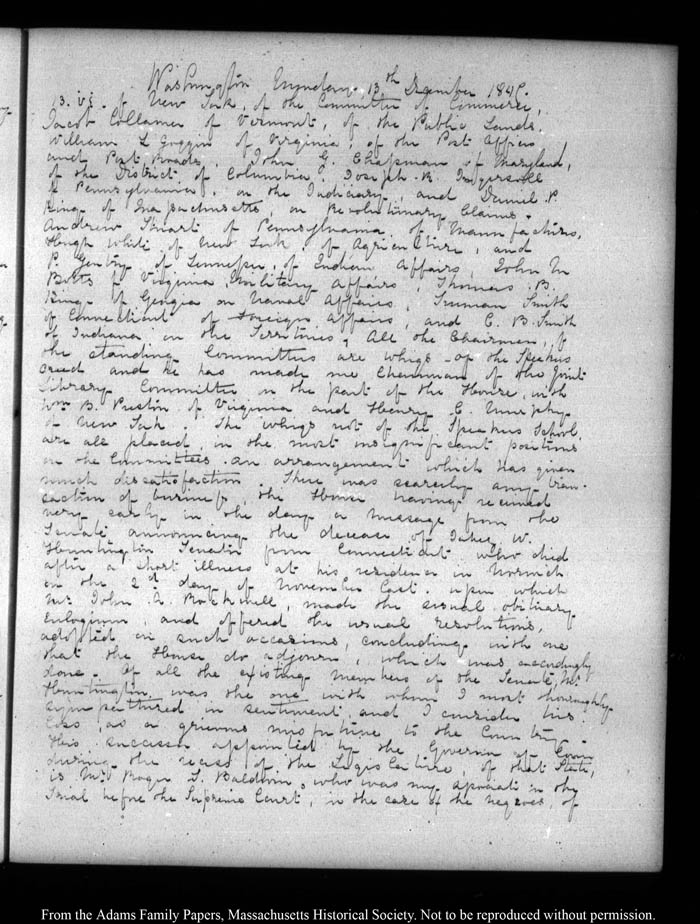 Washington Monday 13th December 1847.
13. VI. of New York, of the Committee of Commerce,
Jacob Collamer of Vermont, of the Public Lands.
William L Goggin of Virginia, of the Post Office
and Post Roads. John G. Chapman of Maryland,
of the District of Columbia. Joseph R. Ingersoll
of Pennsylvania, on the Judiciary, and Daniel P.
King of Massachusetts, on Revolutionary Claims.
Andrew Stewart of Pennsylvania of Manufactures,
Hugh White of New York, of Agriculture, and
P. Gentry of Tennessee, of Indian Affairs, John M
Botts of Virginia Military Affairs, Thomas B.
King of Georgia on Naval Affairs, Truman Smith
of Connecticut of Foreign Affairs, and C. B. Smith
of Indiana on the Territories, All the Chairmen, of
the standing Committees are whigs of the Speakers
creed and he has made me Chairman of the Joint
Library Committee on the part of the House, with
Wm B. Preston of Virginia and Henry C. Murphy
of New York. The whigs not of the Speakers School,
are all placed in the most insignificant positions
on the Committees. an arrangement which has given
much dissatisfaction. There was scarcely any tran-
saction of business, the House having received
very early in the day a message from the
Senate announcing the decease of Jabez W.
Huntington Senator from Connecticut who died
after a short illness at his residence in Norwich
on the 2d day of November last. upon which
Mr John A. Rockwell, made the usual obituary
eulogium, and offered the usual resolutions,
adopted on such occasions, concluding with one
that the House do adjourn, which was accordingly
done. Of all the existing members of the Senate, Mr
Huntington was the one with whom I most thoroughly
sympathized in sentiment and I consider his
loss as a grievous misfortune to the Country.
His successor appointed by the Governor of Conn
during the recess of the Legislature, of that State,
is Mr Roger S. Baldwin, who was my associate in the
trial before the Supreme Court, in the case of the negroes, of
From the Adams Family Papers, Massachusetts Historical Society. Not to be reproduced without permission.